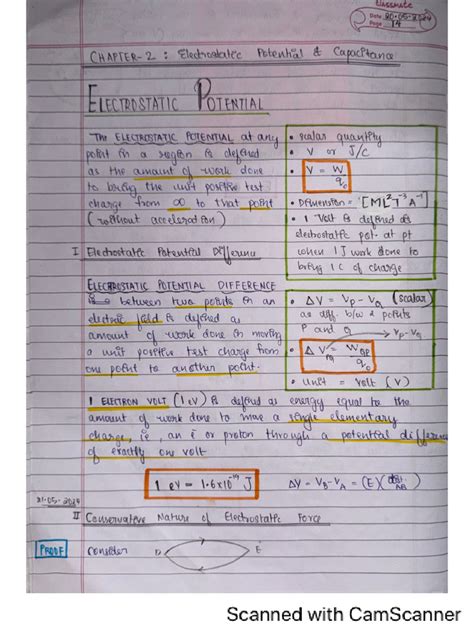 classmate
Date 20-05-2024
Page 14
CHAPTER-2 : Electrostatic Potential & Capacitance
ELECTROSTATIC POTENTIAL
The ELECTROSTATIC POTENTIAL at any
point in a region is defined
as the amount of work done
to bring the unit positive test
charge from ∞ to that point
(without acceleration)
• scalar quantity
• V or J/C
• V = W/q₀
• Dimension = [ML²T⁻³A⁻¹]
• 1 Volt is defined as
electrostatic pot. at pt
when 1 J work done to
bring 1 C of charge
I Electrostatic Potential Difference
ELECTROSTATIC POTENTIAL DIFFERENCE
is between two points in an
electric field is defined as
amount of work done in moving
a unit positive test charge from
one point to another point.
• ΔV = Vp - VQ (scalar)
as diff. b/w 2 points
P and Q
Vp-VQ
• ΔV = WQP/q₀
PQ
• unit = volt (V)
1 ELECTRON VOLT (1eV) is defined as energy equal to the
amount of work done to move a single elementary
charge, ie, an e or proton through a potential difference
of exactly one volt
1 eV = 1.6×10⁻¹⁹ J
ΔV = VB-VA = (E)(dist. AB)
21-05-2024
II Conservative Nature of Electrostatic Force
PROOF
Consider
Scanned with CamScanner